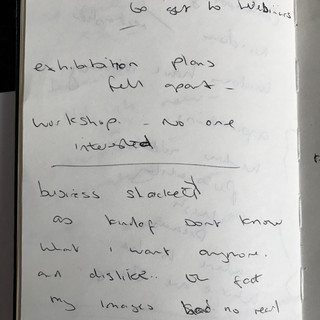 to get to Webinars
exhibabition plans
fell apart -
Workshop. - No one
interested
business slacked
as kindof dont know
what i want anymore.
an dislike.. or feel
my images bad. no real